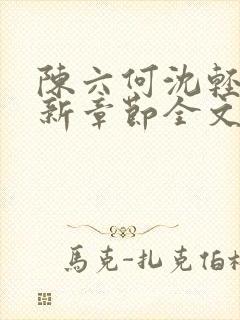 陳六何沈輕
新章節全文
馬克-扎克伯格